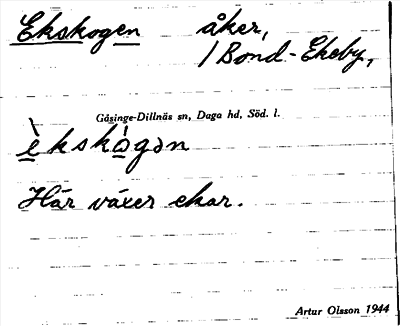 Ekskogen åker,
/ Bond-Ekeby,
Gåsinge-Dillnäs sn, Daga hd, Söd. l.
è̱kskò̱gən
Här växer ekar.
Artur Olsson 1944